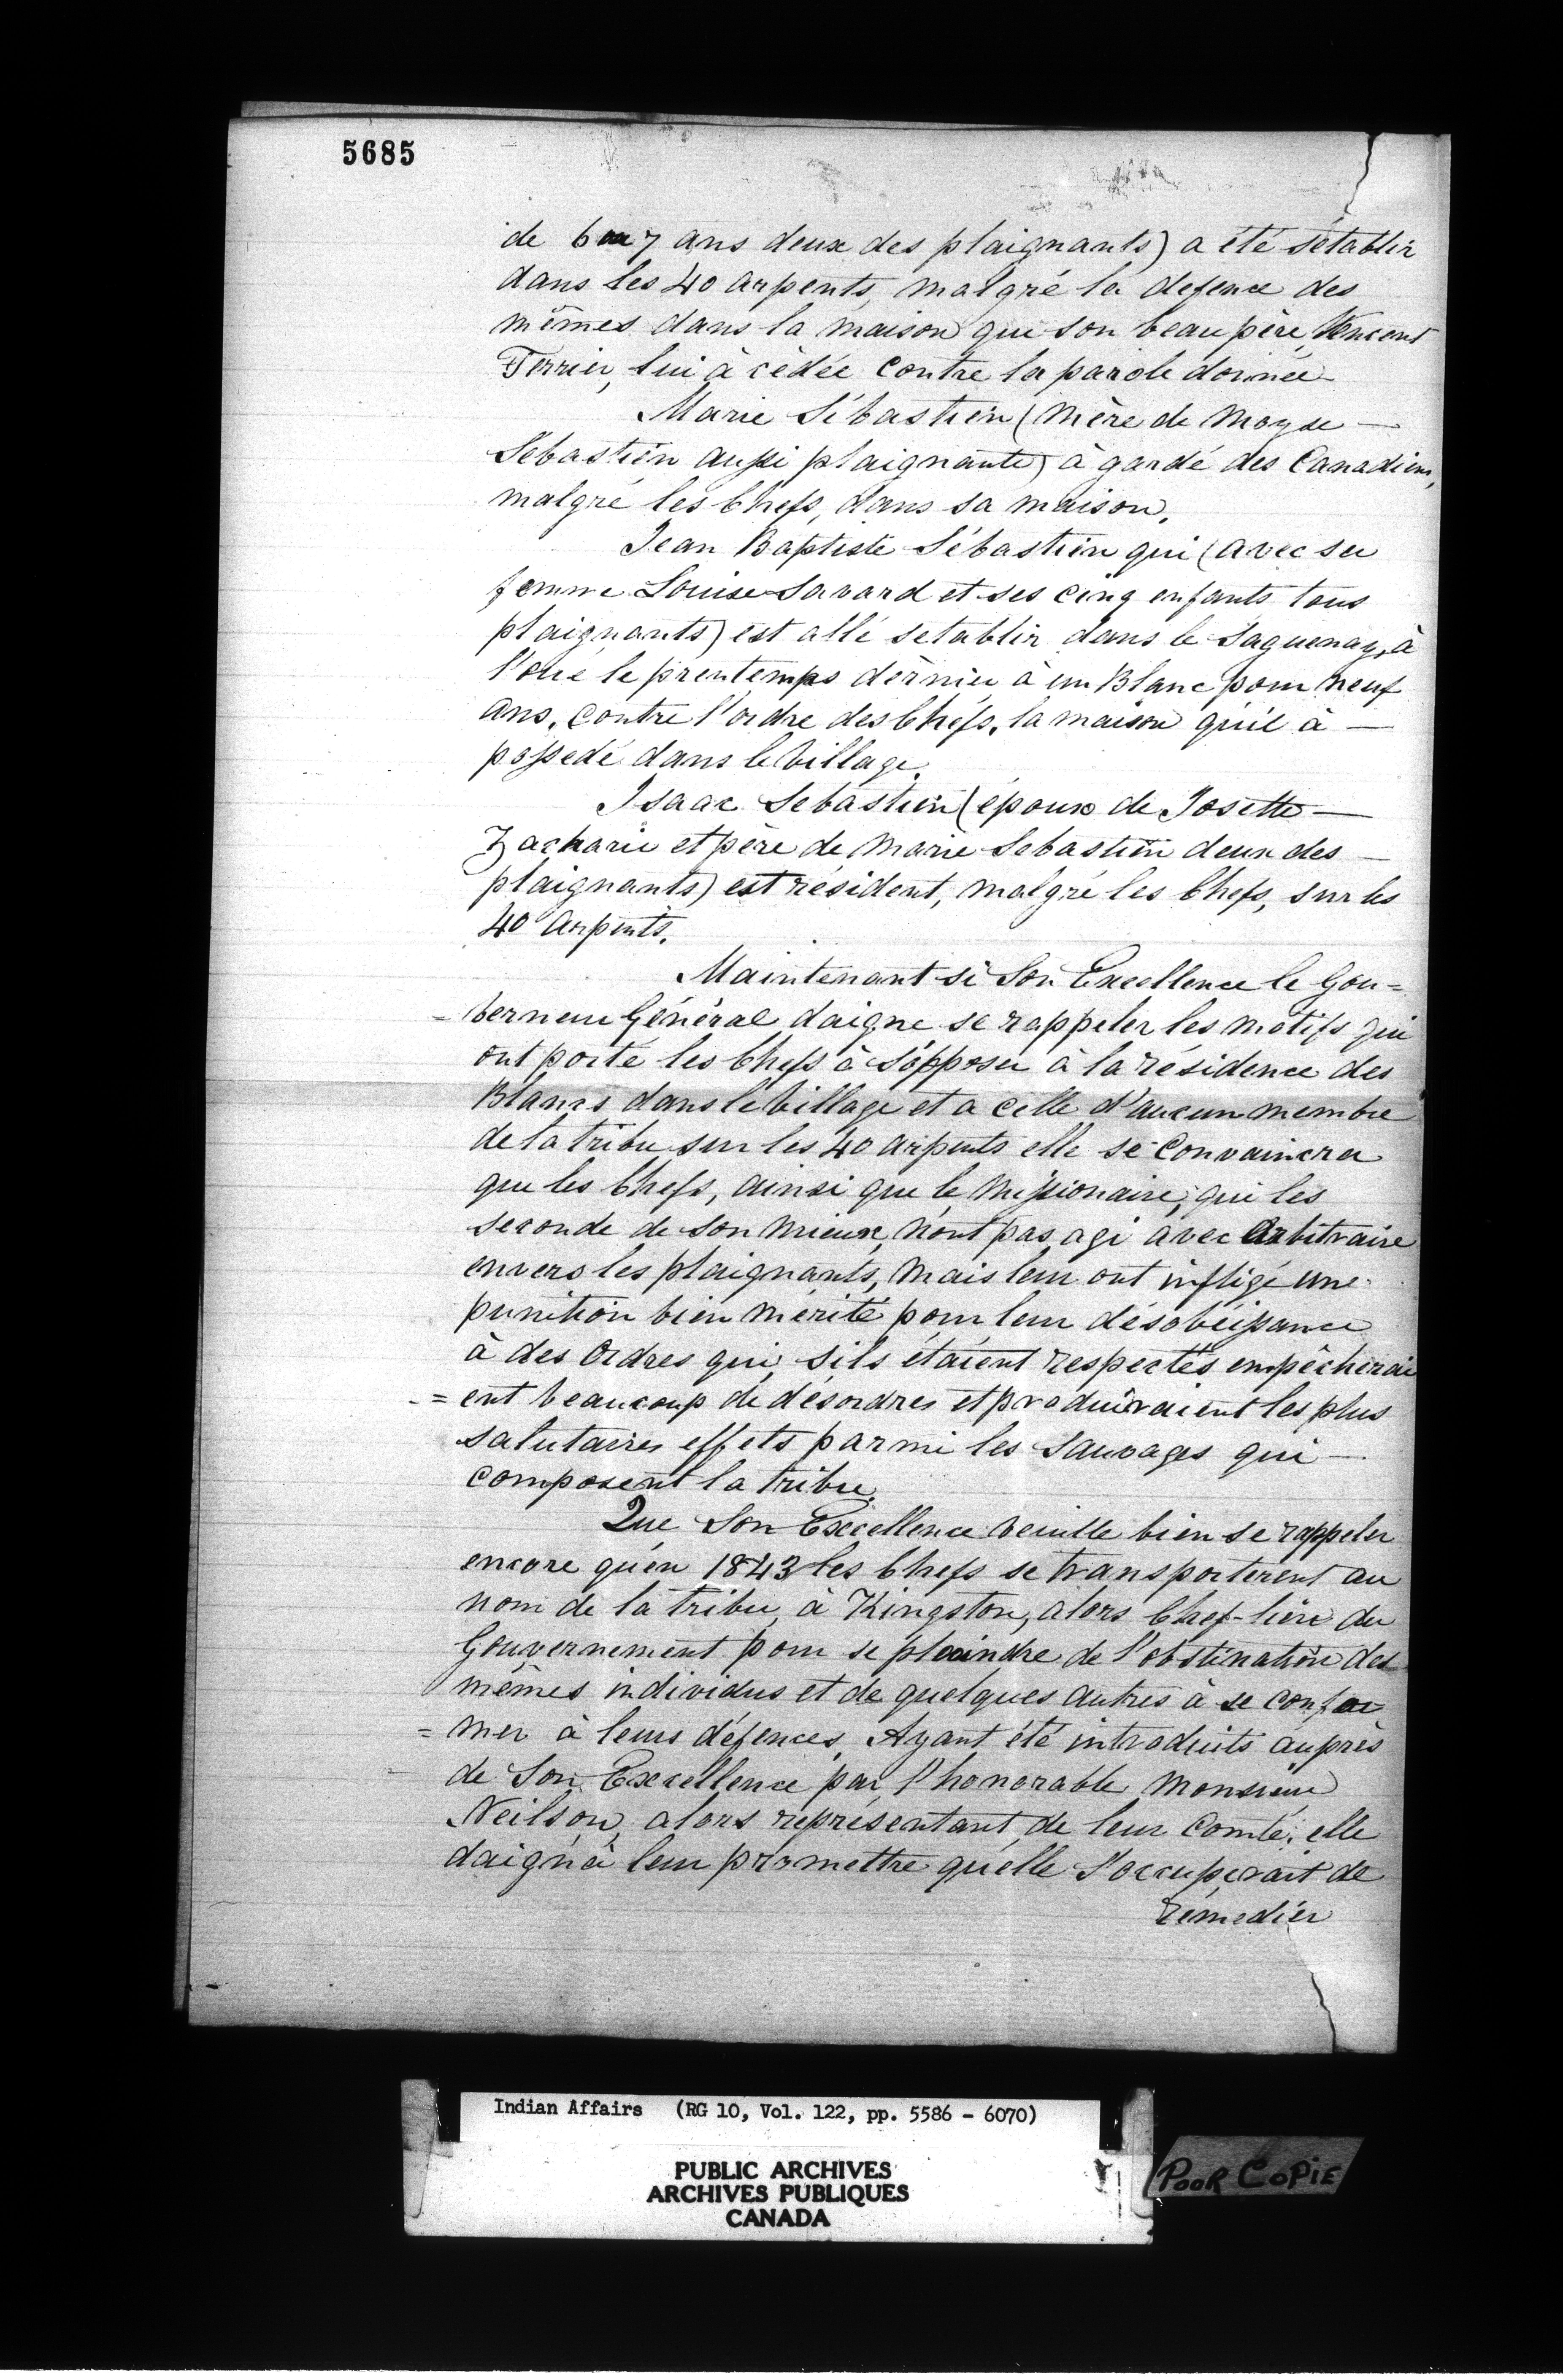 5685
de 6 ou 7 ans deux des plaignants) a été s'établir
dans les 40 arpents, malgré la defence des
mêmes dans la maison que son beau père, Vencent
Ferrier, lui à cèdée contre la parole donnée
Marie Sébastien (mère de Moyse —
Sébastien aussi plaignante) à gardé des Canadiens,
malgré les Chefs, dans sa maison.
Jean Baptiste Sébastien qui (avec sa
femme Louise Savard et ses cinq enfants tous
plaignants) est allé setablir dans le Saguenay, à
loué le prentemps dérnier à un Blanc pour neuf
ans, contre l'ordre des Chefs, la maison qu'il à —
possedé dans le Village.
Isaac Sebastien (époux de Josette —
Zacharie et père de Marie Sebastien deux des —
plaignants) est résident, malgré les Chefs, sur les
40 arpents.
Maintenant si Son Excellence le Gou=
=verneur Général daigne se rappeler les motifs qui
ont porté les Chefs à s'opposer à la résidence des
Blancs dans le Village et a celle d'aucun membre
de la tribu sur les 40 arpents elle se convaincra
que les Chefs, ainsi que le Missionaire, qui les
seconde de son mieux, n'ont pas agi avec Arbitraire
envers les plaignants, mais leur ont infligé une
punition bien mérité pour leur désobéissance
à des Ordres qui, s'ils étaient respectés empêcherai
=ent beaucoup de désordres et produiraient les plus
salutaires effets parmi les Sauvages qui —
composent la tribu.
Que Son Excellence veuille bien se rappeler
encore qu'en 1843 les Chefs se transporterent au
nom de la tribu, à Kingston, alors Chef-lieu du
Gouvernement pour se plaindre de l'obstination des
mêmes individus et de quelques autres à se confor
=mer à leurs défences. Ayant été introduits auprès
de Son Excellence par l'honorable Monsieur
Neilson, alors représentant de leur Comté, elle
daigna leur promettre qu'elle s'occuperait de
rémedier
Indian Affairs (RG 10, Vol. 122, pp. 5586 - 6070)
PUBLIC ARCHIVES
ARCHIVES PUBLIQUES
CANADA
POOR COPIE